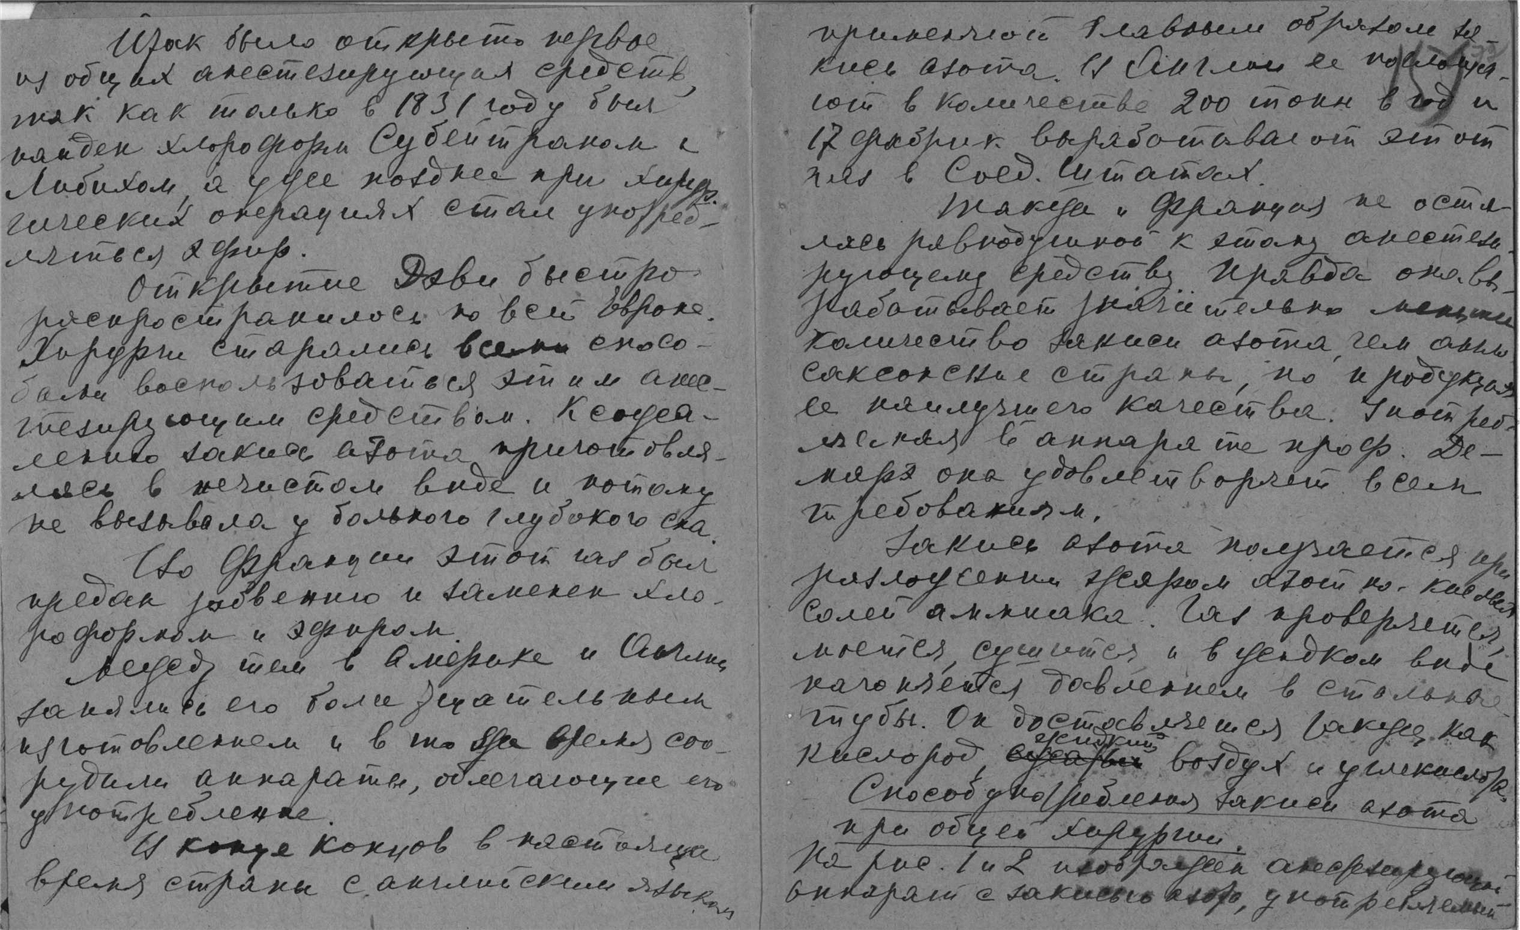 Итак было открыто первое
из общих анестезирующих средств,
так как только в 1831 году был
найден хлороформ Субейтраном и
Либихом, а уже позднее при хирур-
гических операциях стал употреб-
ляться эфир.
Открытие Дэви быстро
распространилось по всей Европе.
Хирурги старались всеми спосо-
бами воспользоваться этим анес-
тезирующим средством. К сожа-
лению закись азота приготовля-
лась в нечистом виде и потому
не вызывала у больного глубокого сна.
Во Франции этот газ был
предан забвению и заменен хло-
роформом и эфиром.
Между тем в Америке и Англии
занялись его более тщательным
изготовлением и в то же время соо-
рудили аппараты, облегчающие его
употребление.
В конце концов в настояще
время страны с английским языком
применяют главным образом за-
кись азота. В Англии ее поглоща-
ют в количестве 200 тонн в год и
17 фабрик вырабатывают этот
газ в Соед. Штатах.
Также и Франция не оста-
лась равнодушной к этому анестези-
рующему средству. Правда она вы-
рабатывает значительно меньшее
количество закиси азота, чем англо-
саксонские страны, но и продукция
ее наилучшего качества. Употреб-
ляемая в аппарате проф. Де-
марэ она удовлетворяет всем
требованиям.
Закись азота получается при
разложении жаром азотно-кислых
солей аммиака. Газ проверяется,
моется, сушится и в жидком виде
нагоняется давлением в стальные
тубы. Он доставляется также, как
кислород, жидкий воздух и углекислота.
Способ употребления закиси азота
при общей хирургии.
На рис. 1 и 2 изображен анестезирующий
аппарат с закисью азота, употребляемый